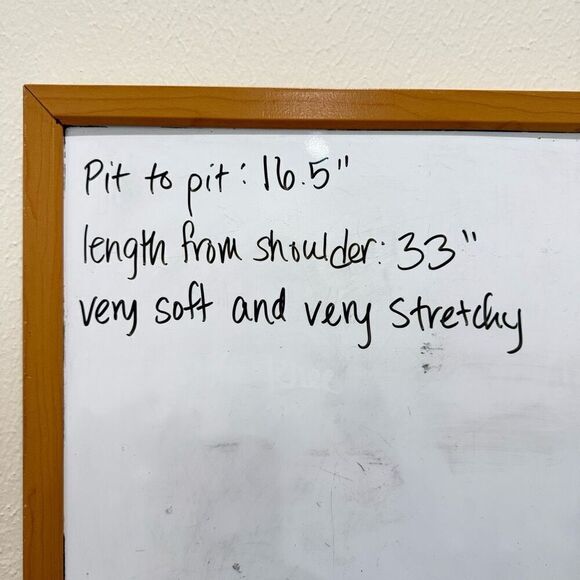 Pit to pit: 16.5"
length from shoulder: 33"
very soft and very stretchy